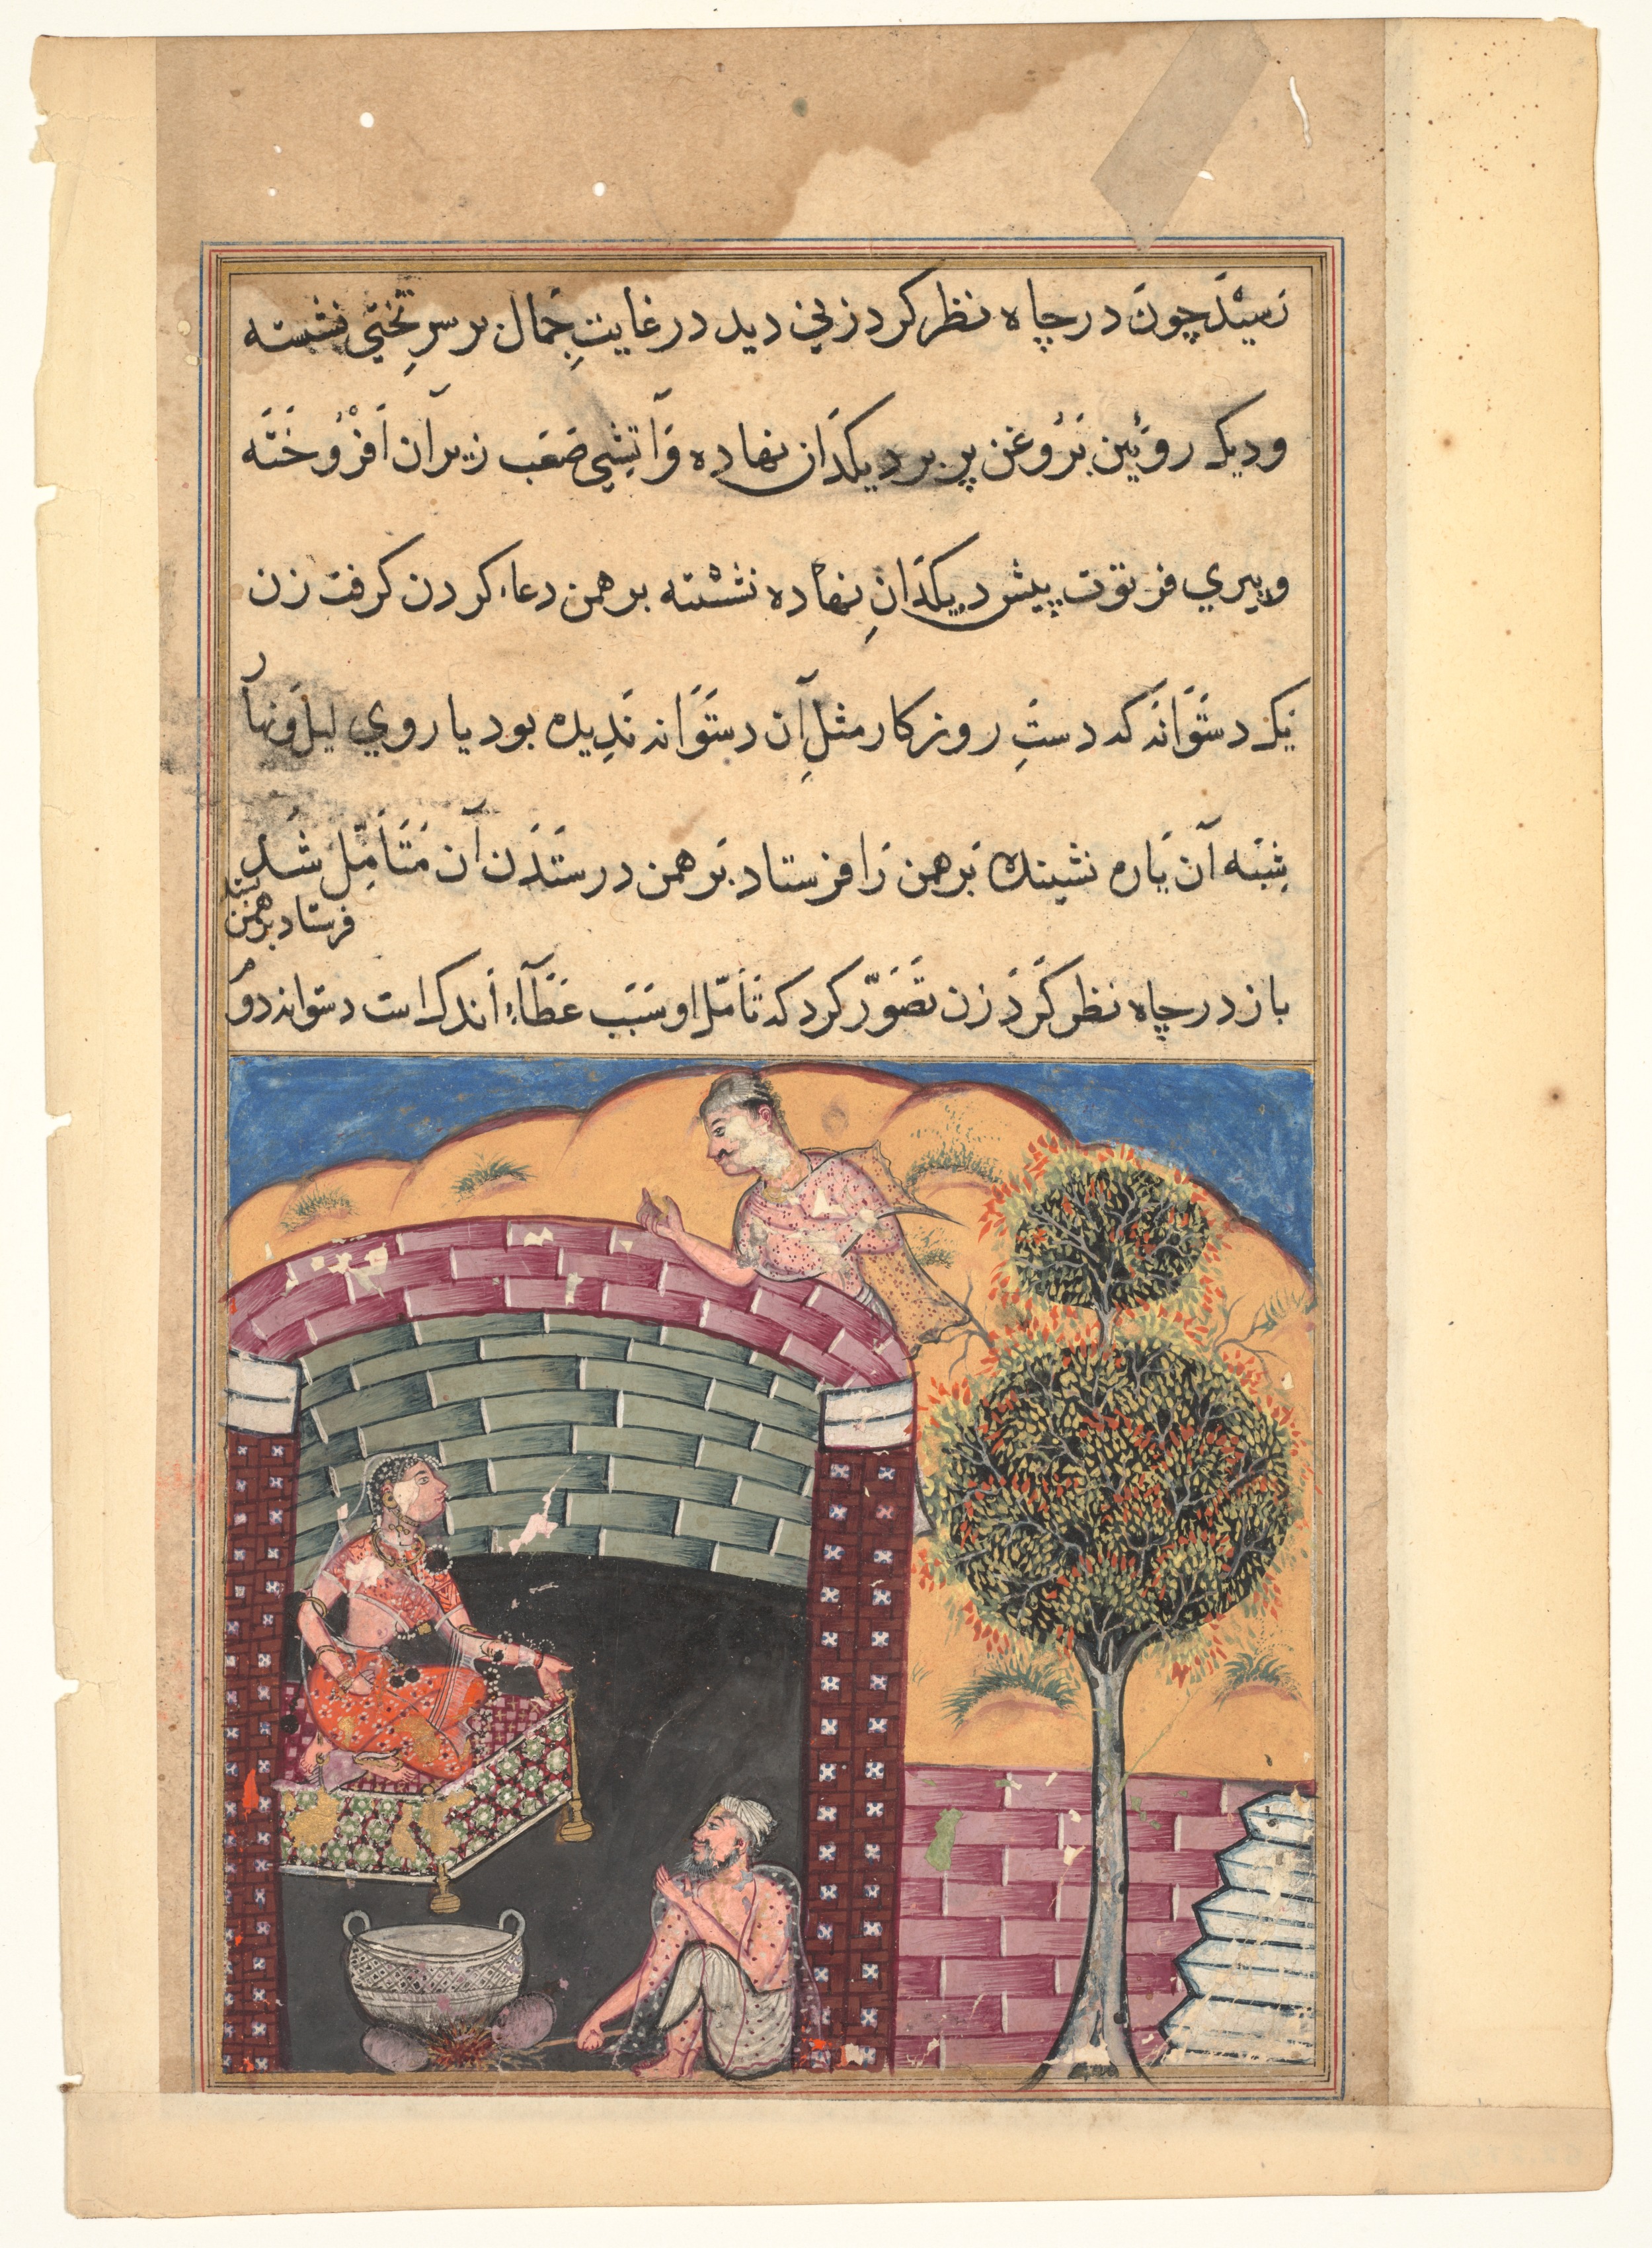 رسید چون در چاه نظر کرد زنی دید در غایتِ جمال بر سرِ تختی نشسته
و دیک روئین بروغن پر بر دیکدان نهاده و آتشی صعب زیر آن افروخته
و پیری فرتوت پیش دیکدانِ نهاده نشسته برهمن دعاء کردن کرفت زن
یک دستوانه که دستِ روزکار مثلِ آن دستوانه ندیده بود یا روی لیل و نهار
شبه آن یاره نشینده برهمن را فرستاد برهمن در ستدن آن متأمّل شد
فرستاد برهمن بستد
باز در چاه نظر کرد زن تصوّر کرد که تأمّل او سبب عطآءِ اندک است دستوانه دوم